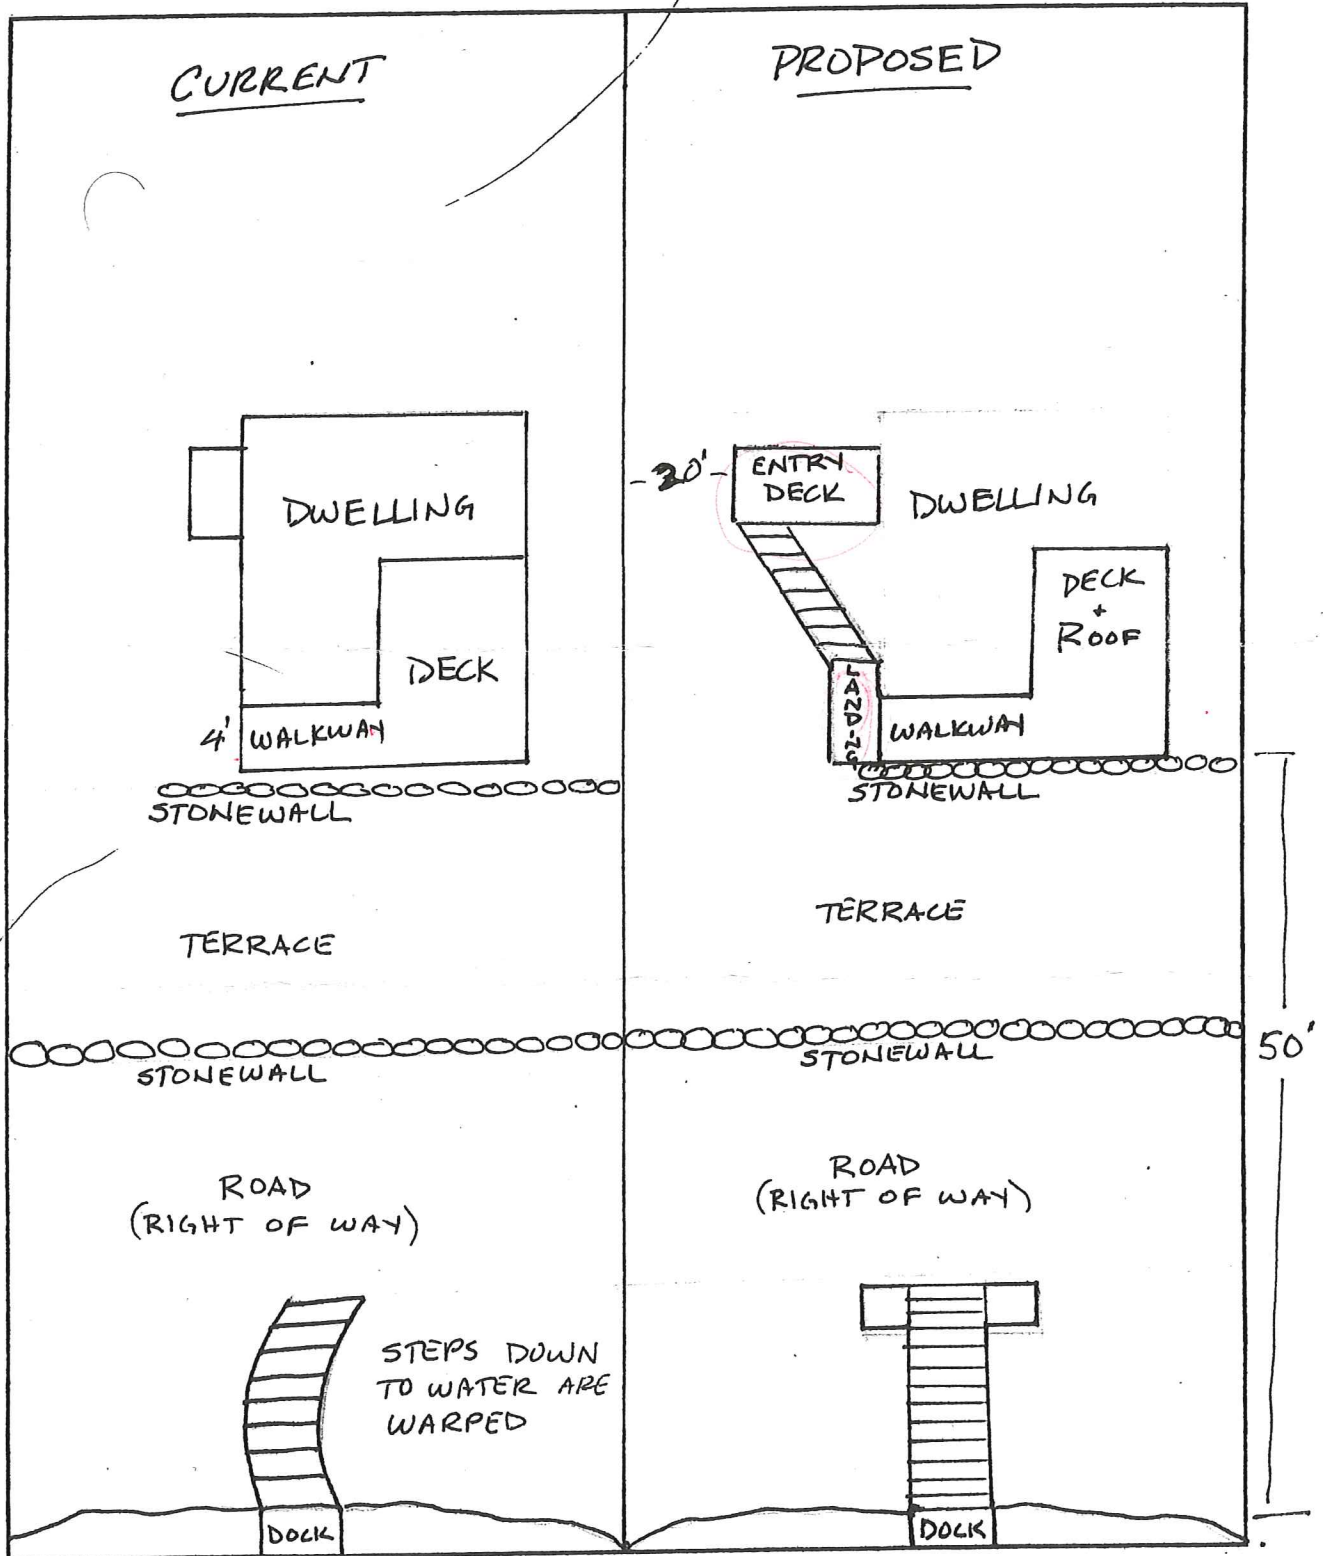 CURRENT
DWELLING
DECK
4' WALKWAY
STONEWALL
TERRACE
STONEWALL
ROAD
(RIGHT OF WAY)
STEPS DOWN
TO WATER ARE
WARPED
DOCK
PROPOSED
ENTRY
DECK
DWELLING
DECK
+
ROOF
LANDING
WALKWAY
STONEWALL
TERRACE
STONEWALL
50'
ROAD
(RIGHT OF WAY)
DOCK